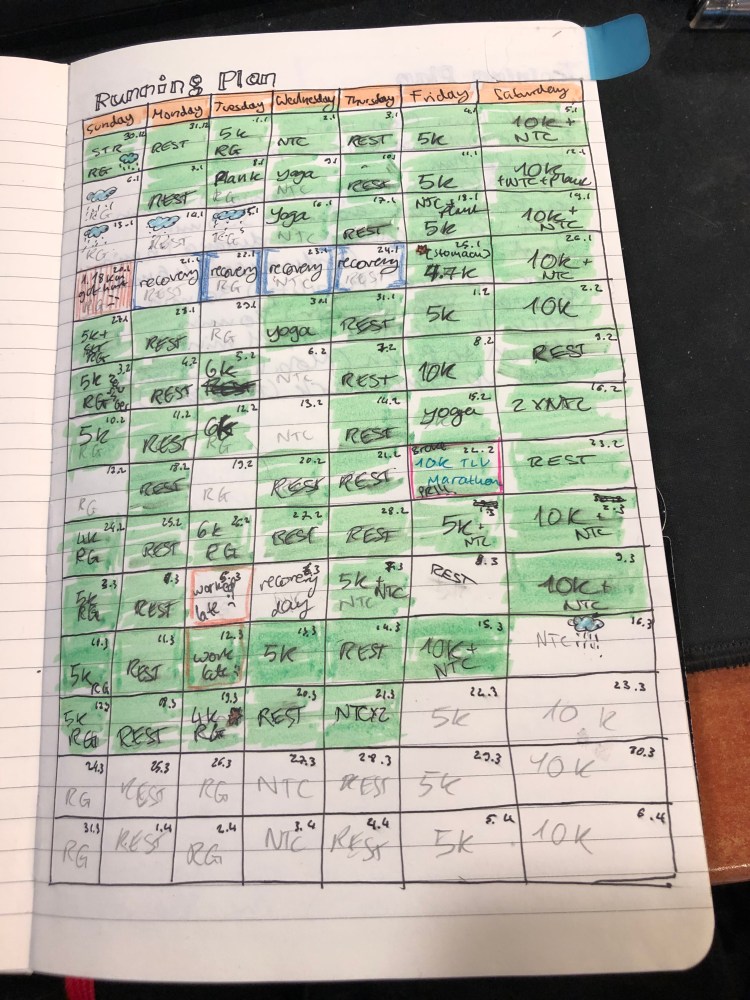 Running Plan
Sunday Monday Tuesday Wednesday Thursday Friday Saturday
30.12 31.12 1.1 2.1 3.1 4.1 5.1
STR REST 5k NTC REST 5k 10k +
RG RG NTC
6.1 7.1 8.1 9.1 10.1 11.1 12.1
RG REST Plank yoga REST 5k 10k
RG NTC +NTC+plank
13.1 14.1 15.1 16.1 17.1 18.1 19.1
RG REST RG Yoga REST NTC + plank 10k +
NTC 5k NTC
20.1 21.1 22.1 23.1 24.1 25.1 26.1
1.18km recovery recovery recovery recovery (stomach) 10k +
REST RG NTC REST 4.7k NTC
27.1 28.1 29.1 30.1 31.1 1.2 2.2
5k + REST RG yoga REST 5k 10k
RG
3.2 4.2 5.2 6.2 7.2 8.2 9.2
5k REST 6k NTC REST 10k REST
RG
10.2 11.2 12.2 13.2 14.2 15.2 16.2
5k REST 6k NTC REST yoga 2 x NTC
RG RG
17.2 18.2 19.2 20.2 21.2 22.2 23.2
RG REST RG REST REST 10k TLV REST
Marathon
24.2 25.2 26.2 27.2 28.2 1.3 2.3
4k REST 6k REST REST 5k + 10k +
RG RG NTC NTC
3.3 4.3 5.3 6.3 7.3 8.3 9.3
5k REST worked recovery 5k + NTC REST 10k +
RG late day NTC NTC
11.3 12.3 13.3 14.3 15.3 16.3
5k REST work 5k REST 10k + NTC
RG late NTC
19.3 20.3 21.3 22.3 23.3
5k REST 4k REST NTCx2 5k 10k
RG RG
24.3 25.3 26.3 27.3 28.3 29.3 30.3
RG REST RG NTC REST 5k 10k
31.3 1.4 2.4 3.4 4.4 5.4 6.4
RG REST RG NTC REST 5k 10k